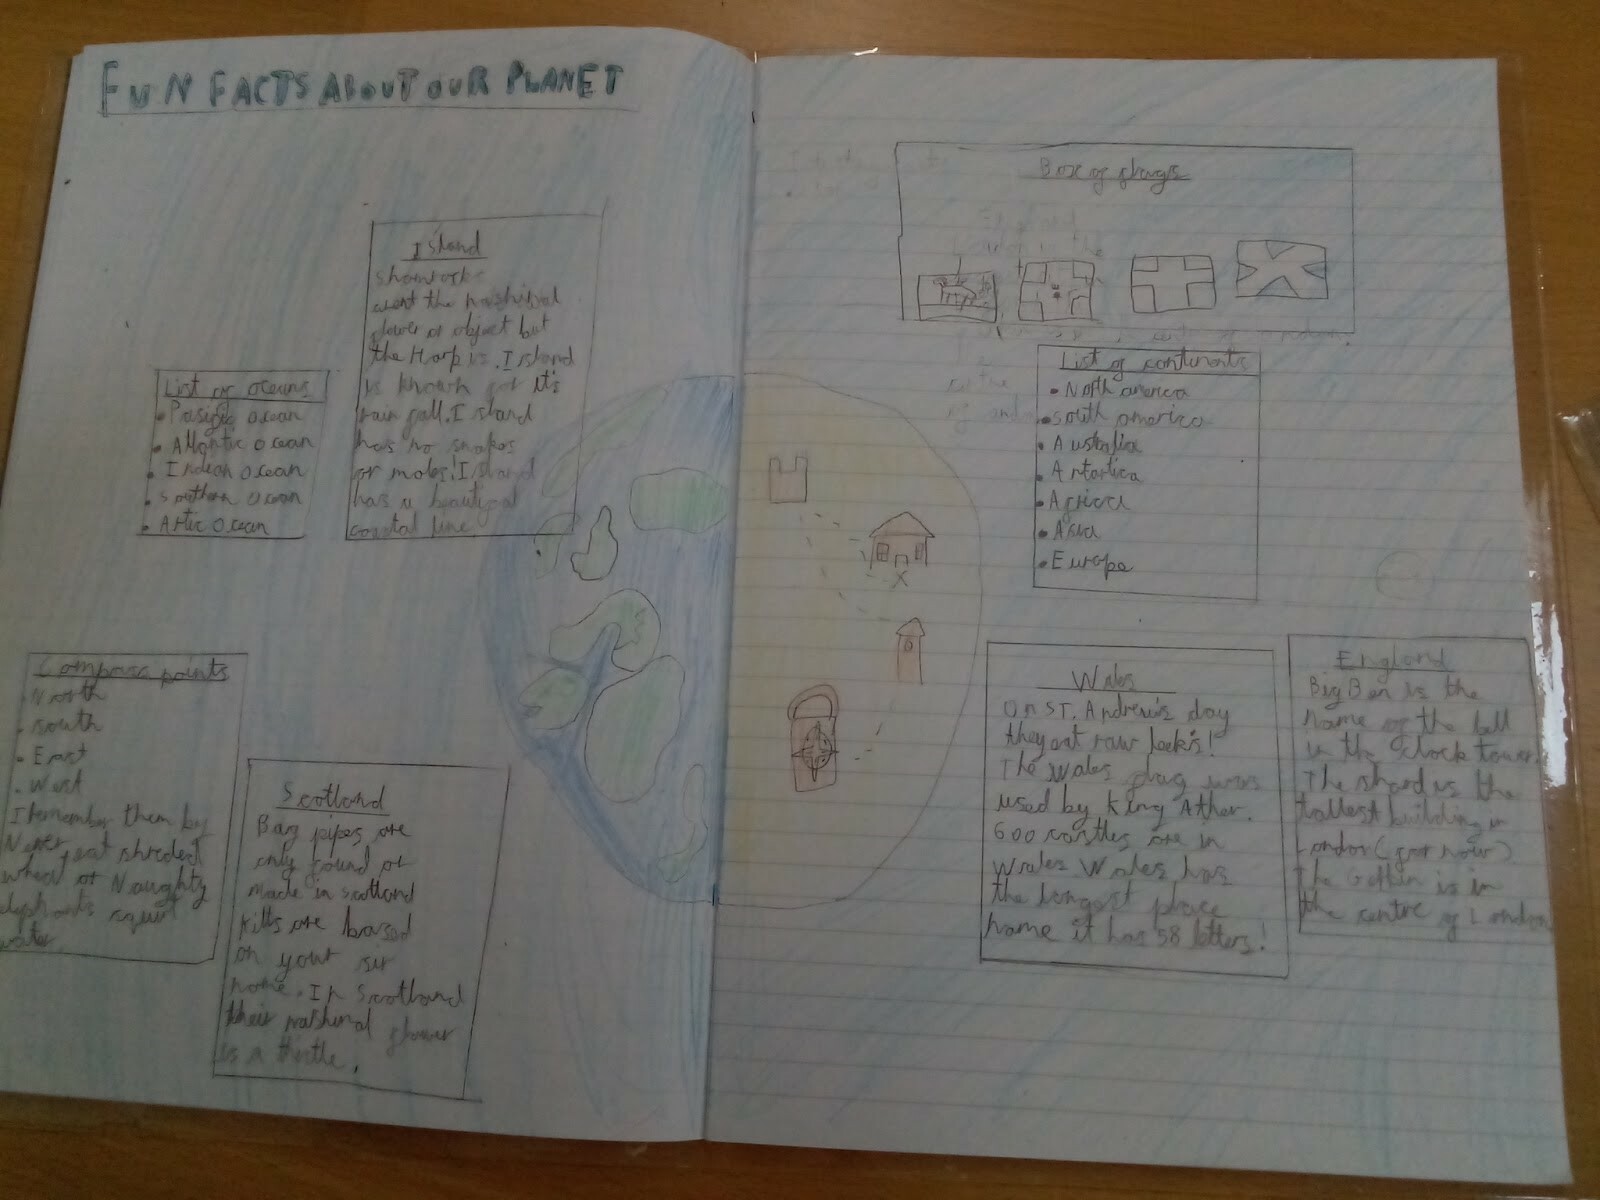 FUN FACTS ABOUT OUR PLANET
Island
shamrocks
arent the nashinal
flower or object but
the Harp is. Island
is known for it's
rain fall. Island
has no snakes
or moles! Island
has a beautifal
coastal line.
List of oceans
• Pasific ocean
• Atlantic ocean
• Indean ocean
• Southern ocean
• Artic Ocean
Compass points
• North
• South
• East
• West
I remember them by
Never eat shreded
wheat or Naughty
elephants squirt
water
Scotland
Bag pipes are
only found or
made in scotland
kilts are based
on your sir
name. In Scotland
their nashinal flower
is a thistle.
Box of flags
List of continents
• North america
• south america
• Australia
• Antartica
• Africa
• Asia
• Europe
Wales
On ST. Andrew's day
they eat raw leek's!
The Wales flag was
used by King Ather.
600 castles are in
Wales Wales has
the longest place
name it has 58 letters!
England
Big Ben is the
name of the bell
in the clock tower.
The shard is the
tallest building in
London (for now).
The Gerkin is in
the centre of London